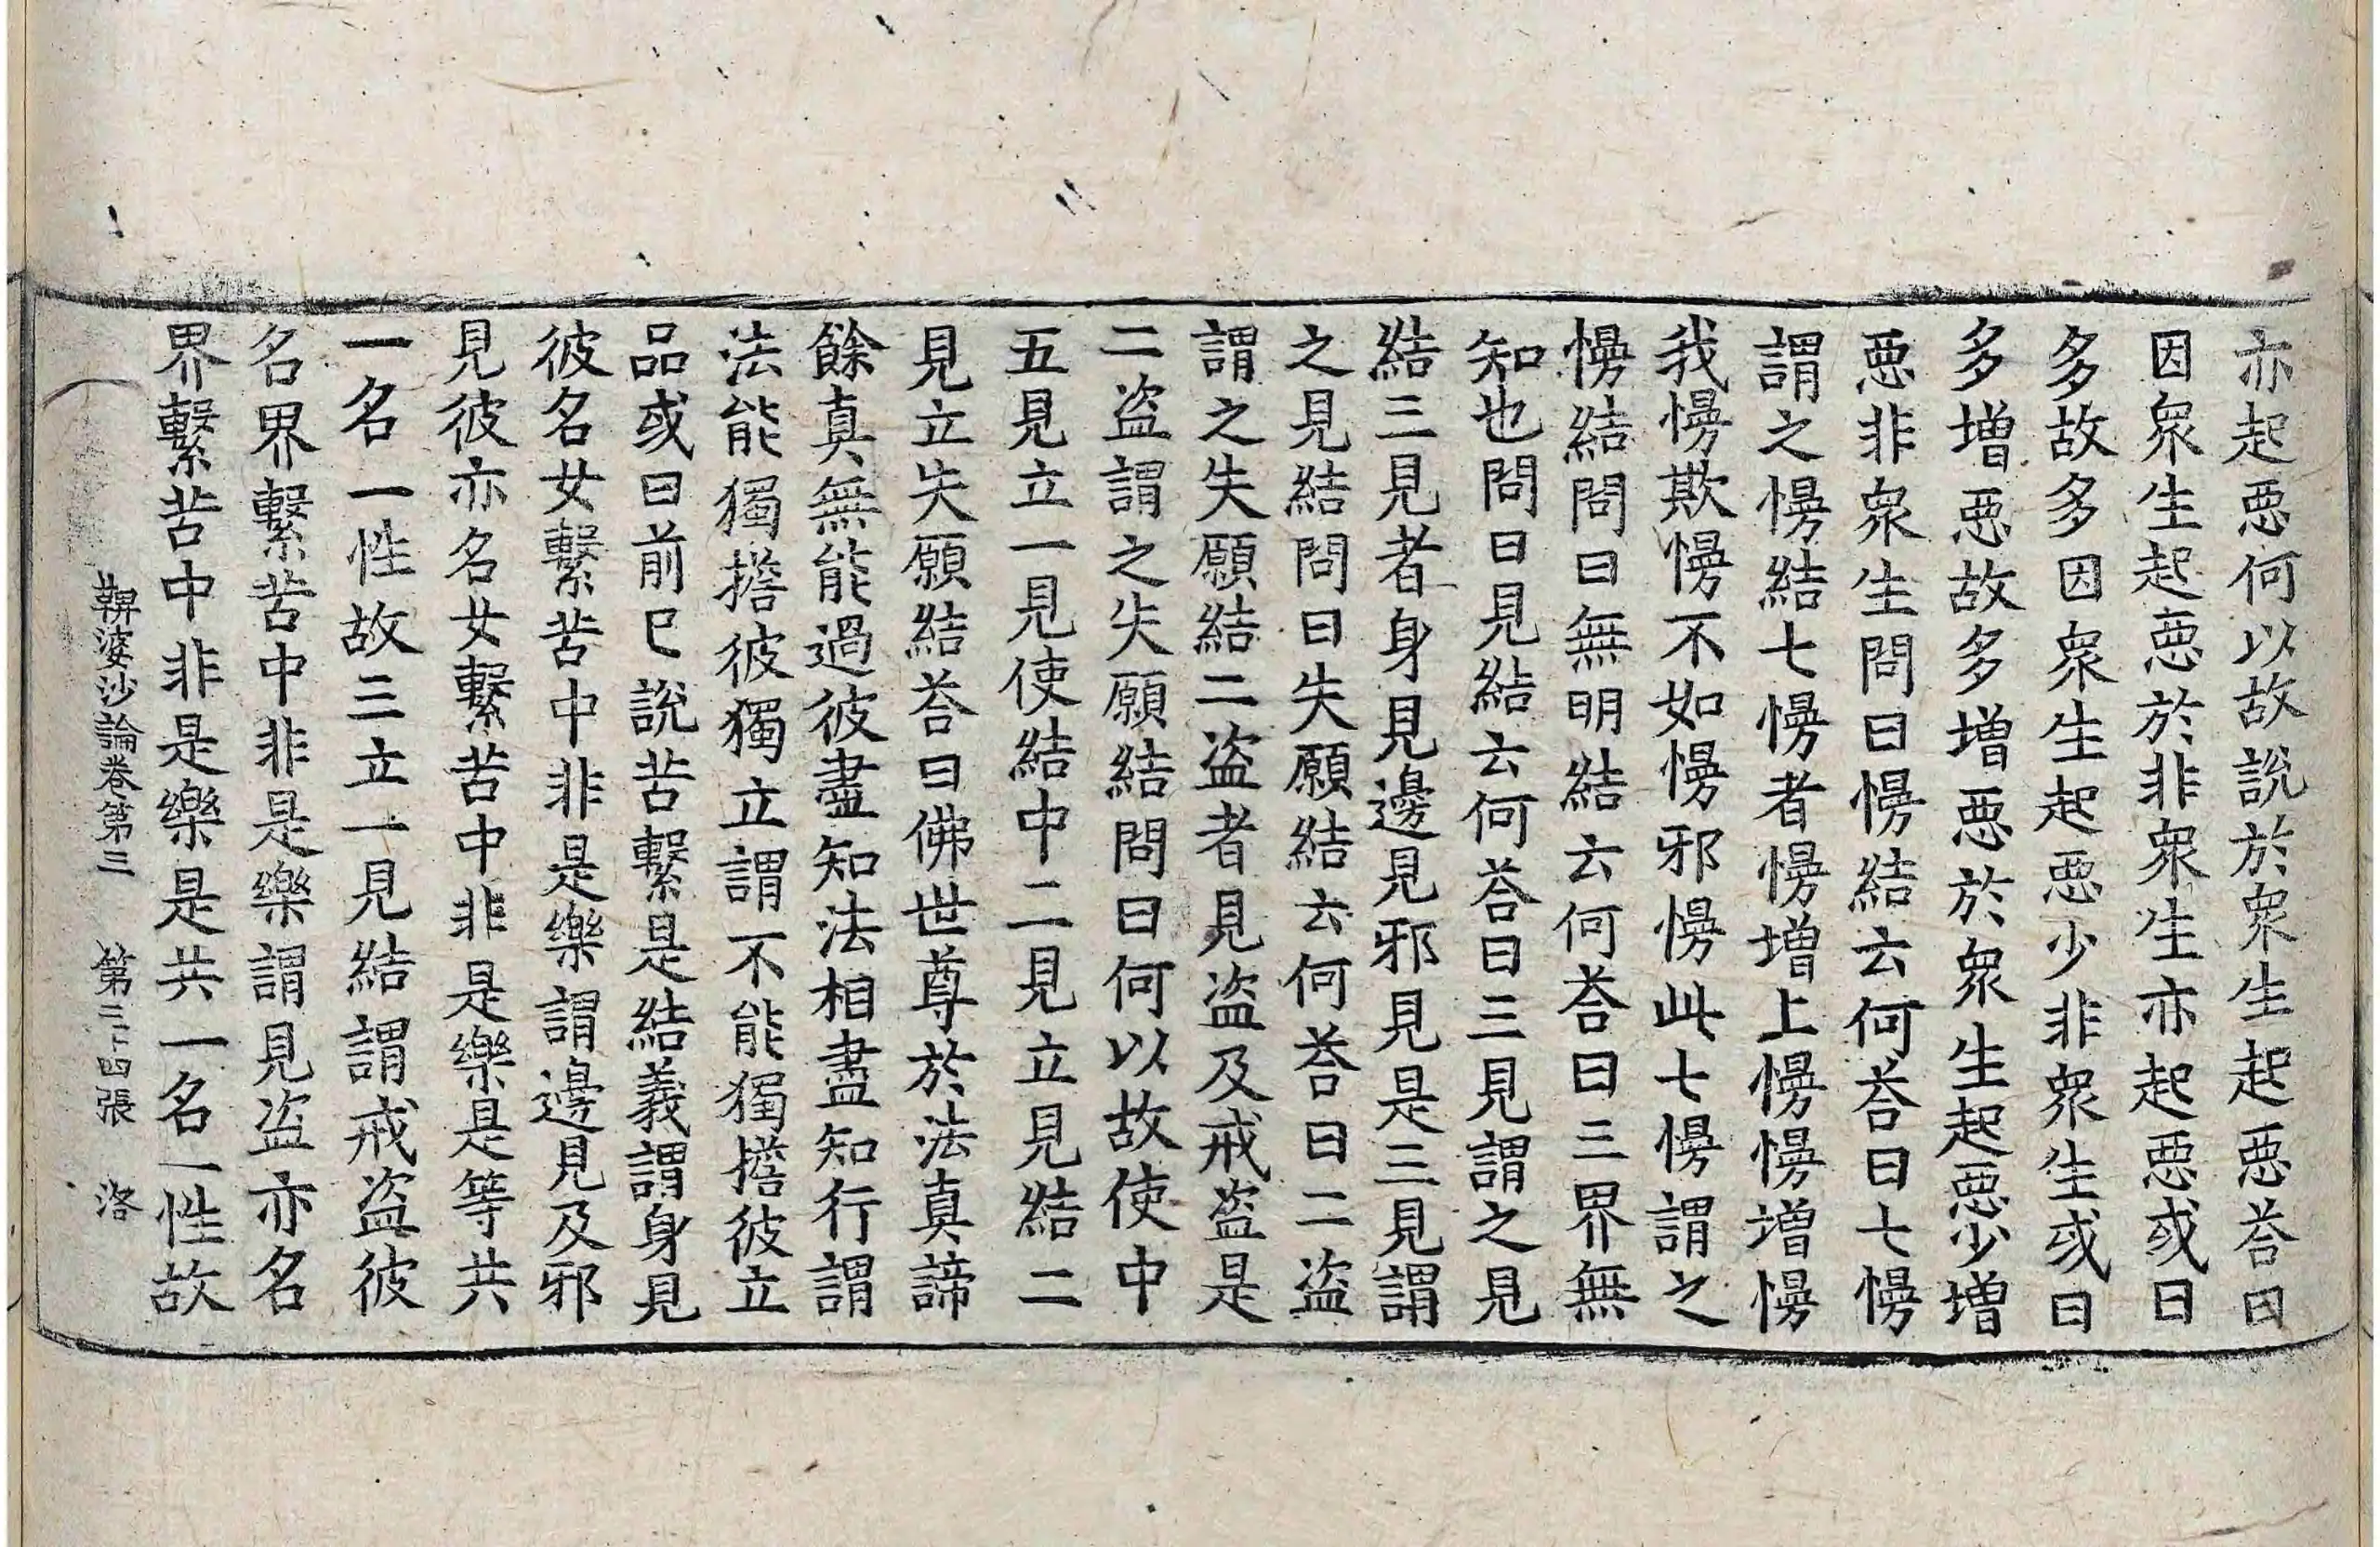 亦起惡何以故說於衆生起惡荅曰
因衆生起惡於非衆生亦起惡或曰
多故多因衆生起惡少非衆生或曰
多增惡故多增惡於衆生起惡少增
惡非衆生問曰慢結云何荅曰七慢
謂之慢結七慢者慢增上慢慢增慢
我慢欺慢不如慢邪慢此七慢謂之
慢結問曰無明結云何荅曰三界無
知也問曰見結云何荅曰三見謂之見
結三見者身見邊見邪見是三見謂
之見結問曰失願結云何荅曰二盗
謂之失願結二盗者見盗及戒盗是
二盗謂之失願結問曰何以故使中
五見立一見使結中二見立見結二
見立失願結荅曰佛世尊於法真諦
餘真無能過彼盡知法相盡知行謂
法能獨擔彼獨立謂不能獨擔彼立
品或曰前已說苦繫是結義謂身見
彼名女繫苦中非是樂謂邊見及邪
見彼亦名女繫苦中非是樂是等共
一名一性故三立一見結謂戒盗彼
名界繫苦中非是樂謂見盗亦名
界繫苦中非是樂是共一名一性故
鞞婆沙論卷第三 第三十四張 洛